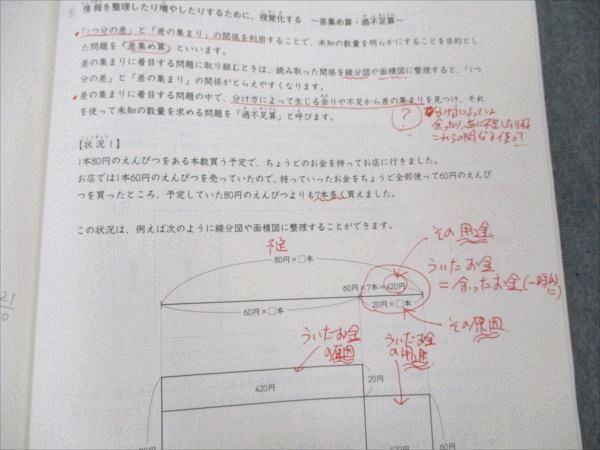 情報を整理したり増やしたりするために、視覚化する ～差集め算・過不足算～
「1つ分の差」と「差の集まり」の関係を利用することで、未知の数量を明らかにすることを目的とし
た問題を「差集め算」といいます。
差の集まりに着目する問題に取り組むときは、読み取った関係を線分図や面積図に整理すると、「1つ
分の差」と「差の集まり」の関係がとらえやすくなります。
差の集まりに着目する問題の中で、分け方によって生じる余りや不足から差の集まりを見つけ、それ
を使って未知の数量を求める問題を「過不足算」と呼びます。
?
【状況1】
1本80円のえんぴつをある本数買う予定で、ちょうどのお金を持ってお店に行きました。
お店では1本60円のえんぴつを売っていたので、持っていったお金をちょうど全部使って60円のえんぴ
つを買ったところ、予定していた80円のえんぴつよりも7本多く買えました。
この状況は、例えば次のように線分図や面積図に整理することができます。
予定
80円×□本
その用途
ういたお金
=余ったお金(一時的に)
60円×7本=420円
60円×□本
20円×□本
その原因
ういたお金
の原因
ういたお金
の用途
420円
20円
60円
21
0